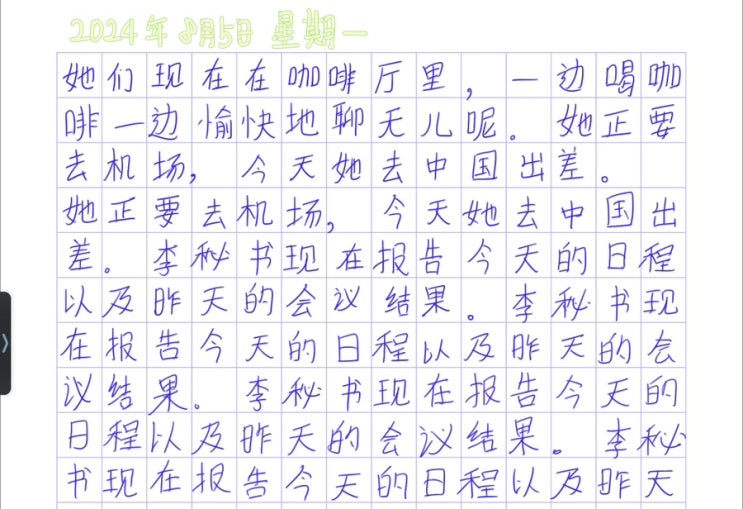 2024年8月5日 星期一
她们现在在咖啡厅里，一边喝咖
啡一边愉快地聊天儿呢。她正要
去机场，今天她去中国出差。
她正要去机场，今天她去中国出
差。李秘书现在报告今天的日程
以及昨天的会议结果。李秘书现
在报告今天的日程以及昨天的会
议结果。李秘书现在报告今天的
日程以及昨天的会议结果。李秘
书现在报告今天的日程以及昨天